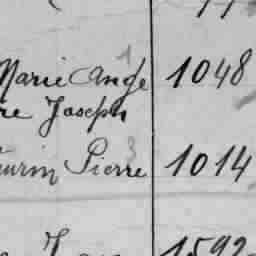 Marie Ange 1048
re Joseph
urin Pierre 1014
1592